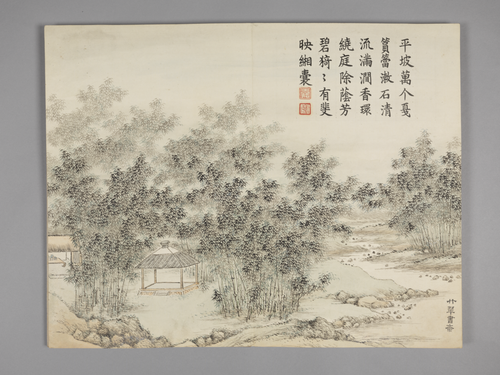 平坡萬个戞
篔簹漱石清
流滿澗香環
繞庭除蔭芳
碧猗〻有斐
映緗囊